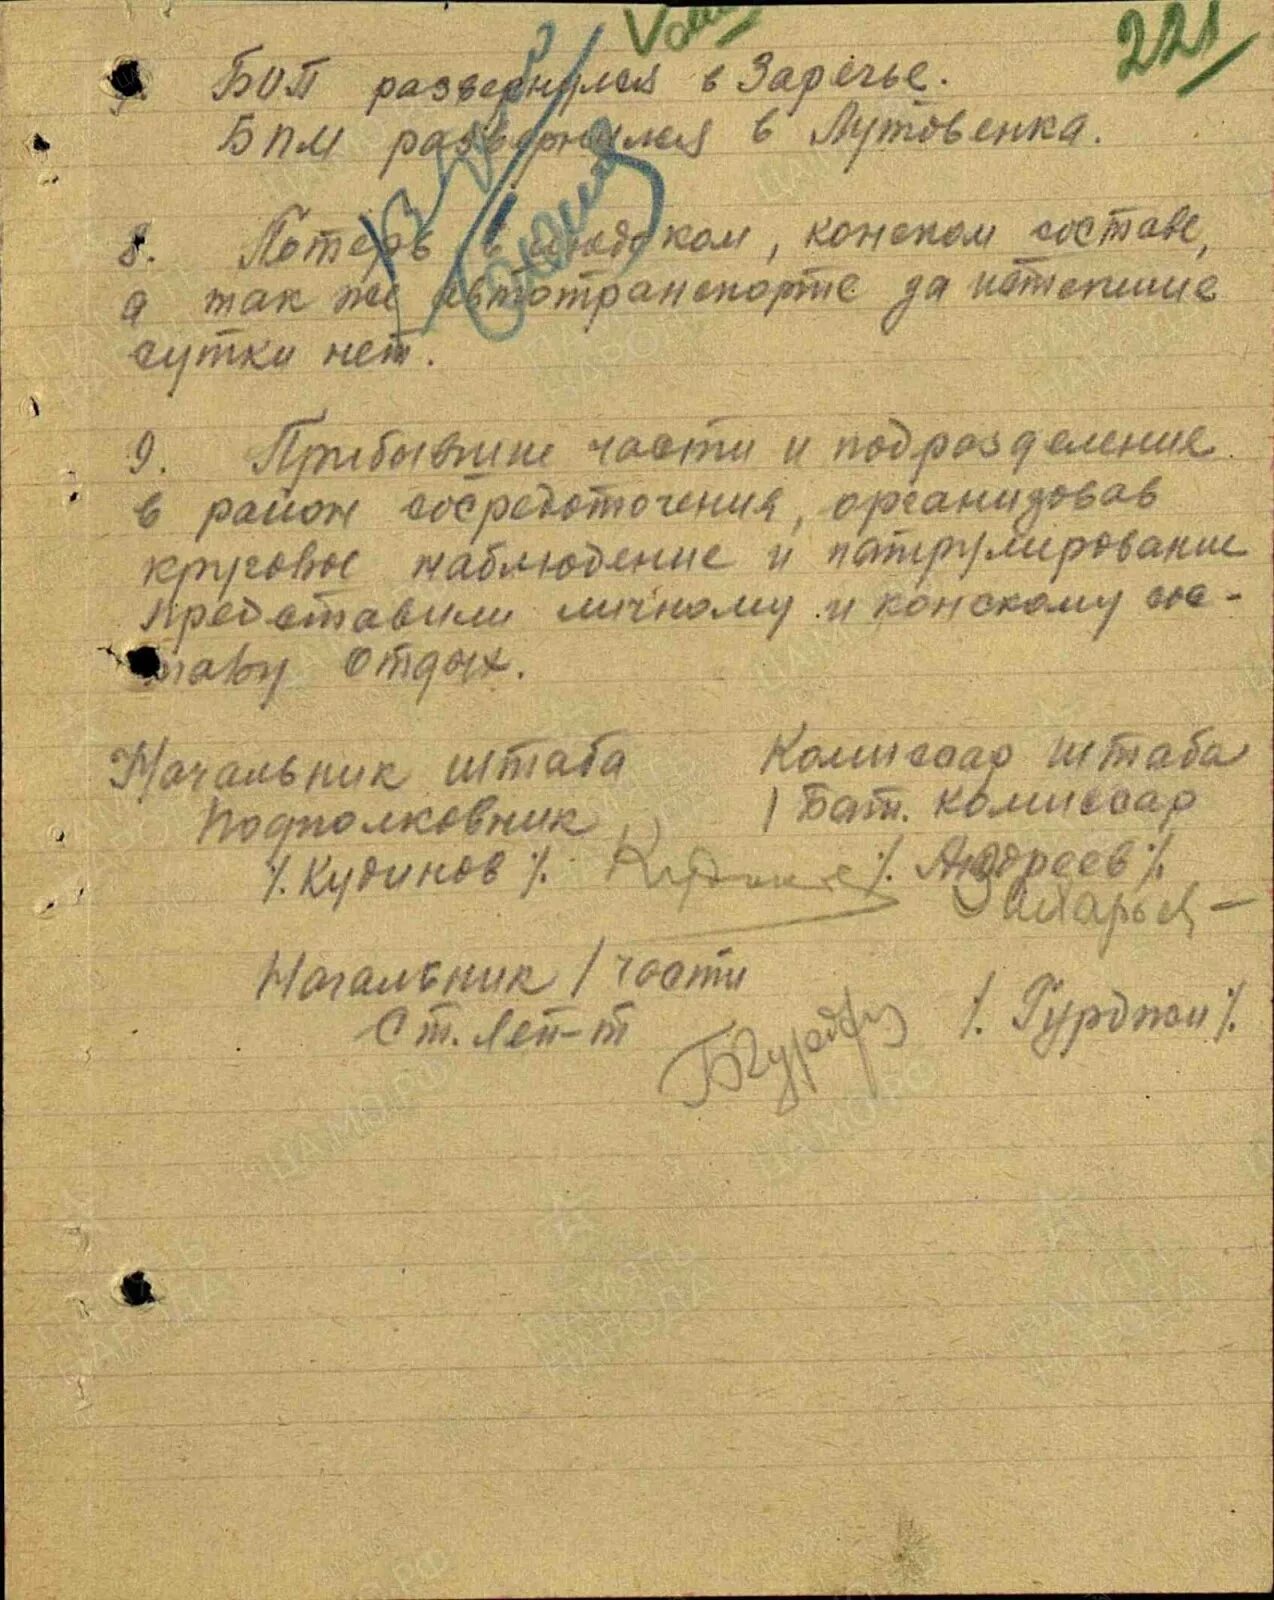 221
БОП развернулся в Заречье.
БПМ развернулся в Лутовенка.
8. Потерь в людском, конском составе,
а так же автотранспорте за истекшие
сутки нет.
9. Прибывшие части и подразделение
в район сосредоточения, организовав
круговое наблюдение и патрулирование
предоставили личному и конскому сос-
таву отдых.
Начальник штаба
Подполковник
/. Кудинов /.
Комиссар штаба
/ Бат. комиссар
/. Андреев /.
Начальник 1 части
Ст. лей-т
/. Гурджи /.